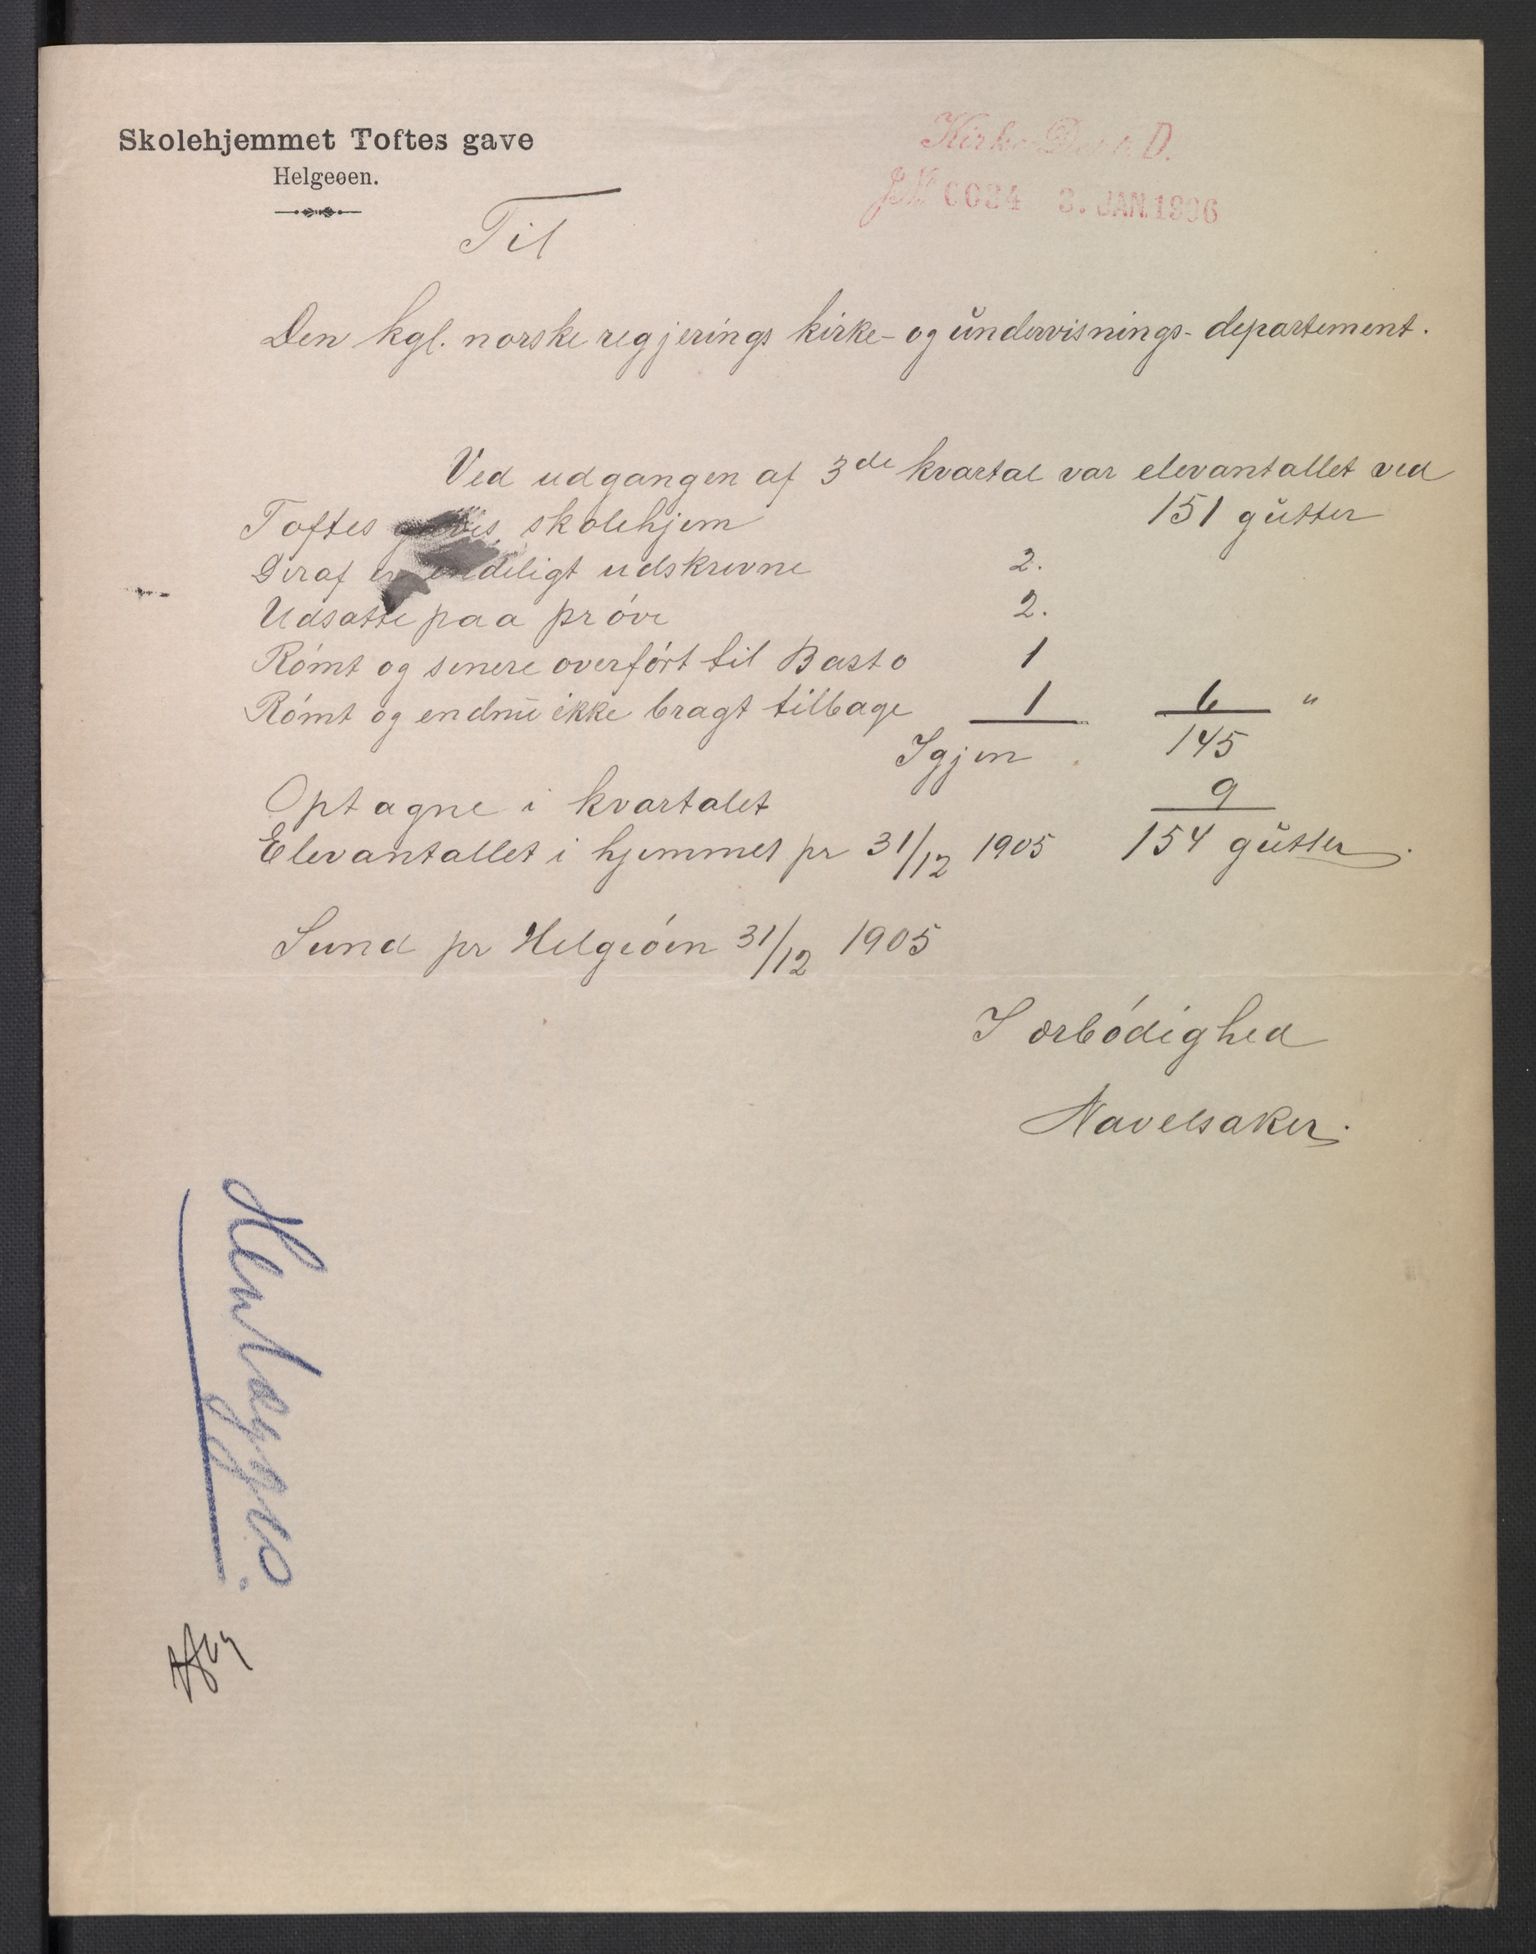 Skolehjemmet Toftes gave
Helgeøen.
Kirke Dept. D.
JN 0034 3. JAN. 1906
Til
Den kgl. norske regjerings kirke- og undervisnings-departement.
Ved udgangen af 3de kvartal var elevantallet ved
Toftes gaves skolehjem 151 gutter
Deraf er endeligt udskrevne 2.
Udsatte paa prøve 2.
Rømt og senere overført til Bastø 1
Rømt og endnu ikke bragt tilbage 1 6 "
Igjen 145
Optagne i kvartalet 9
Elevantallet i hjemmet pr 31/12 1905 154 gutter.
Sund pr Helgeøen 31/12 1905
I ærbødighed
Navelsaker.
Henlægges.